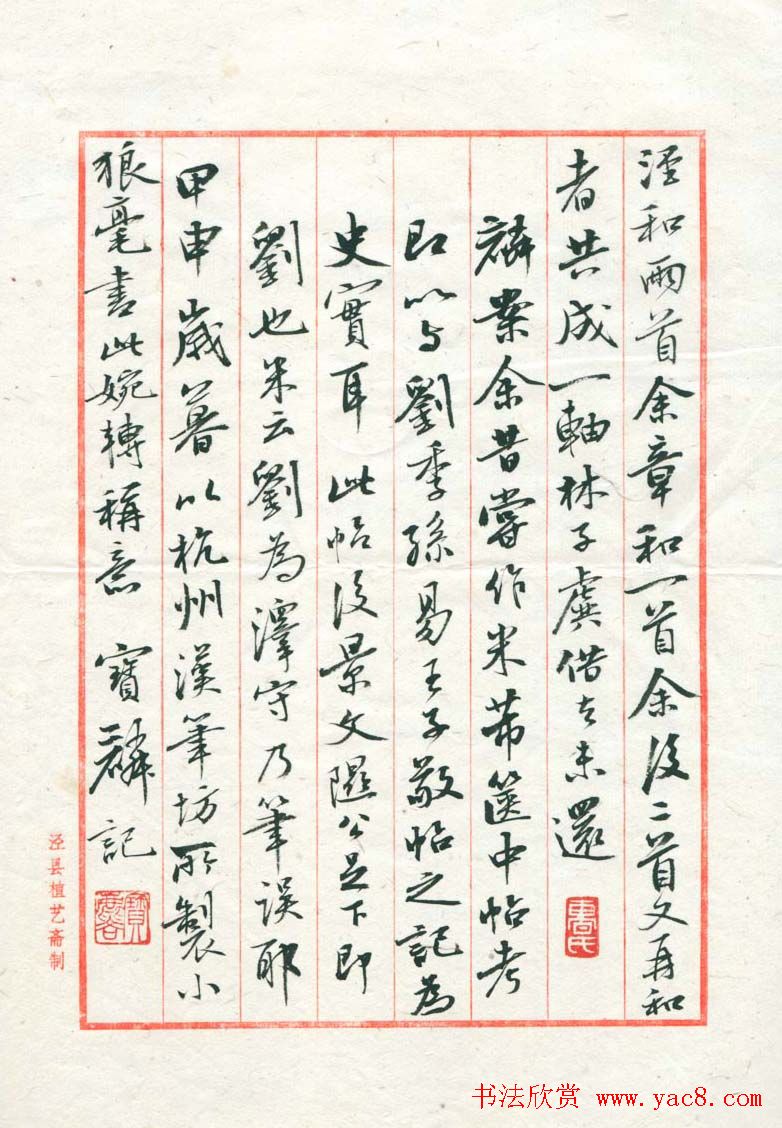 涇和兩首余章和一首余後二首又再和
者共成一軸林子虞借去未還
麟案余昔嘗作米芾篋中帖考
即以与劉季孫易王子敬帖之記為
史實耳 此帖後景文隰公足下即
劉也米云劉為澤守乃筆誤耶
甲申歲暮以杭州漢筆坊所製小
狼毫書此婉轉稱意 寶麟記
曹氏
寶麟
泾县植艺斋制
书法欣赏 www.yac8.com